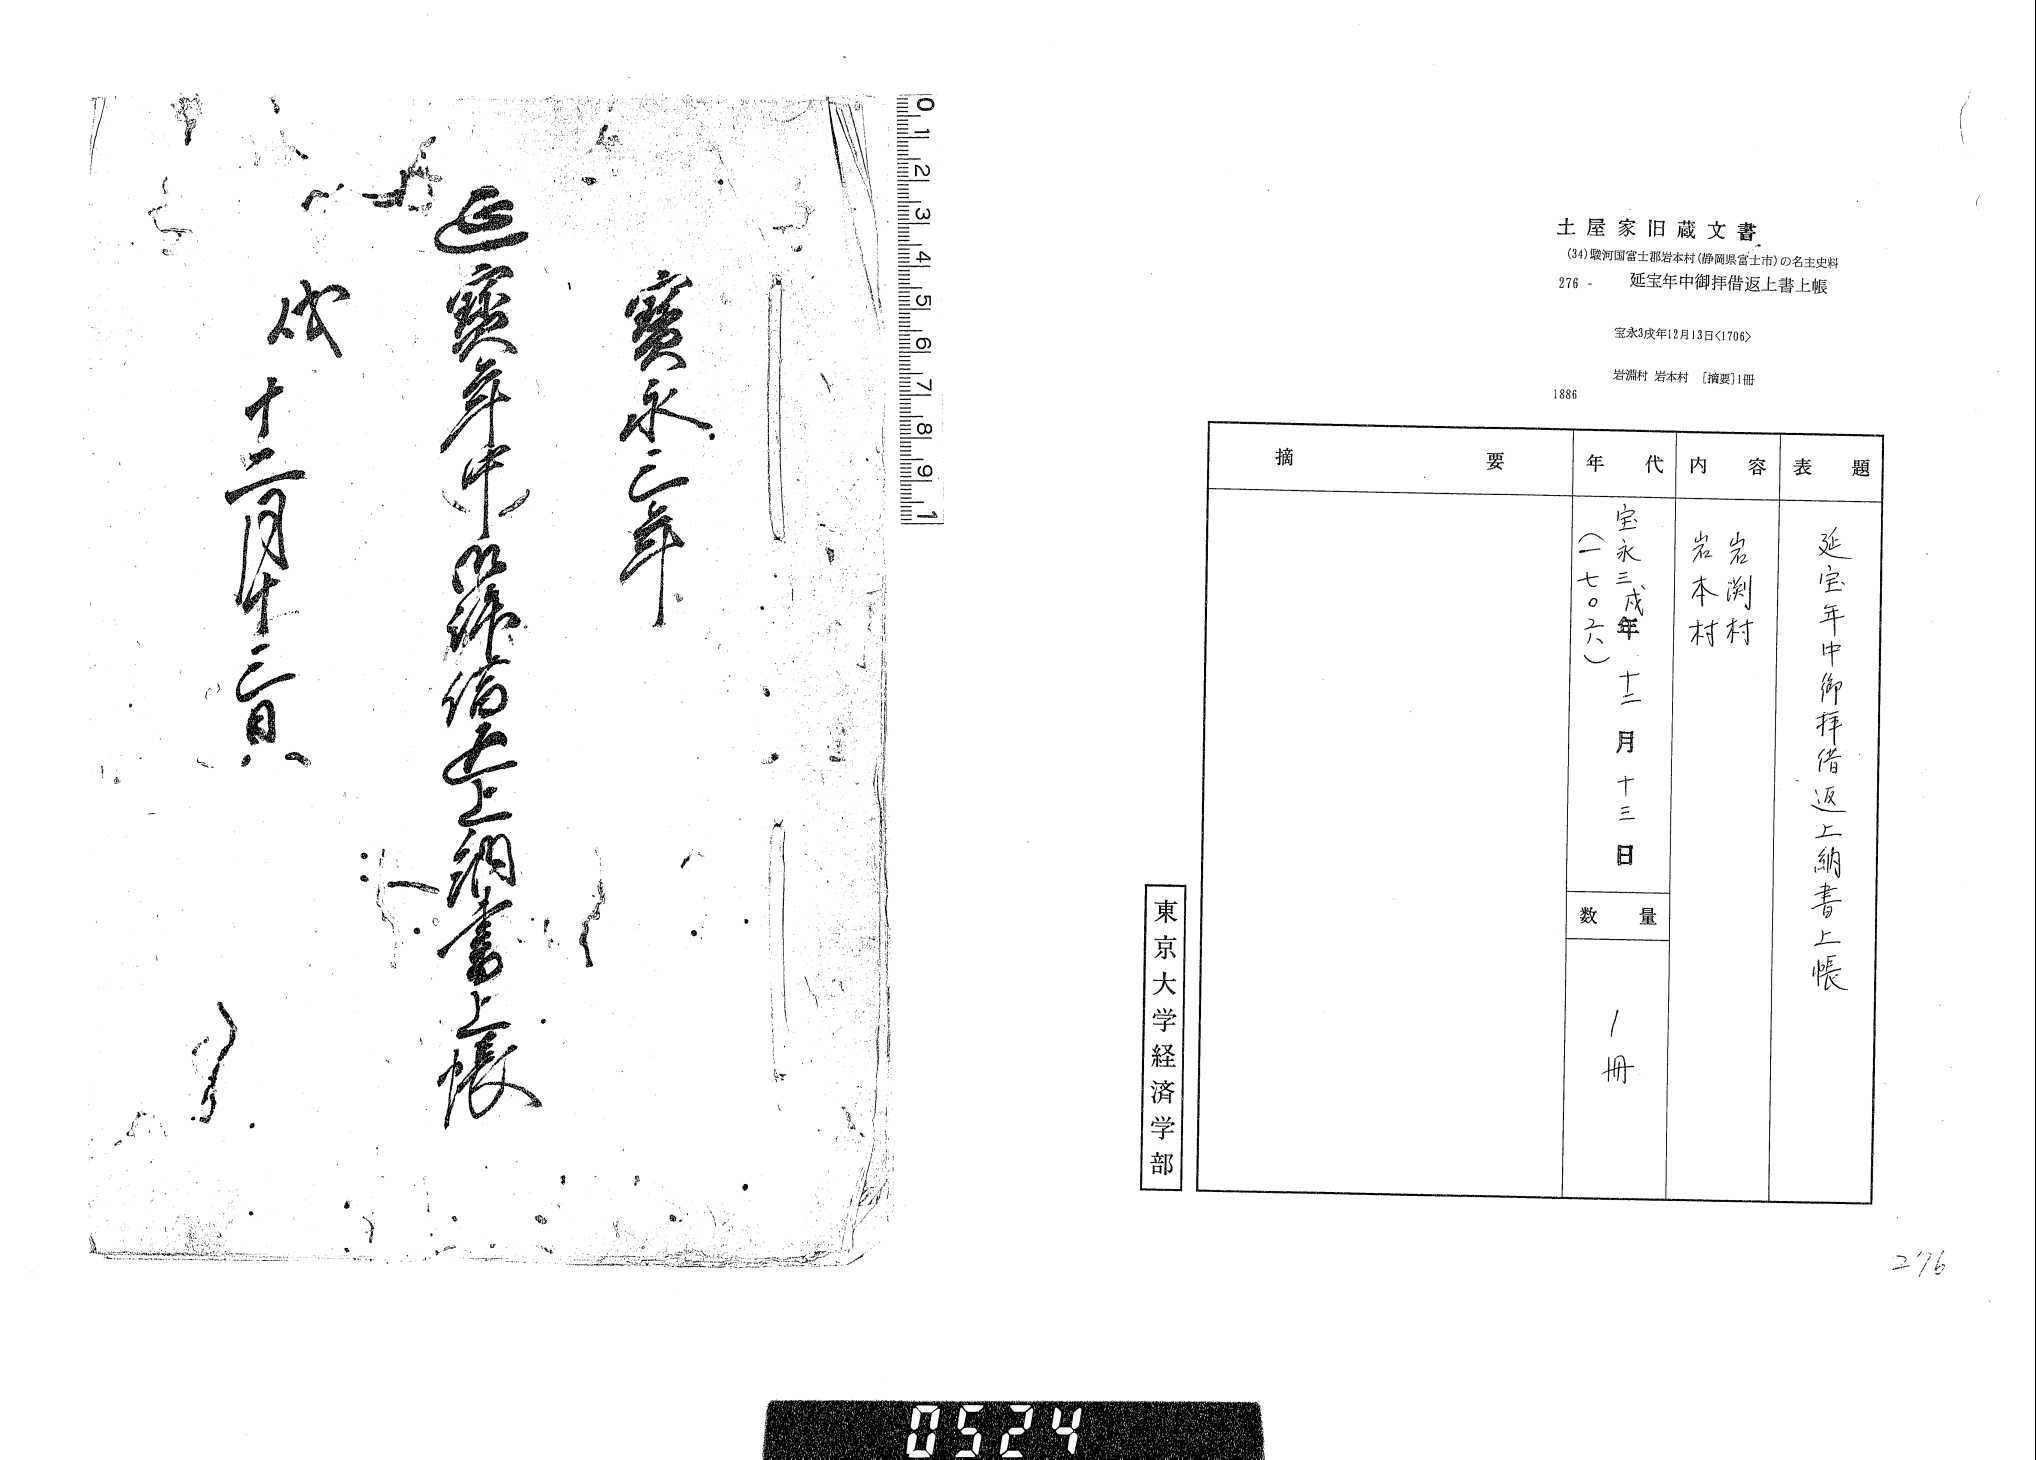 土屋家旧蔵文書
(34)駿河国富士郡岩本村(静岡県富士市)の名主史料
276 - 延宝年中御拝借返上書上帳
宝永3戌年12月13日<1706>
岩淵村 岩本村 [摘要]1冊
1886
表題
延宝年中御拝借返上納書上帳
内容
岩渕村
岩本村
年代
宝永三戌年十二月十三日
(一七〇六)
数量
1冊
摘要
東京大学経済学部
276
0 1 2 3 4 5 6 7 8 9 1
寶永三年
延寶年中御拝借返上納書上帳
戌十二月十三日
0524